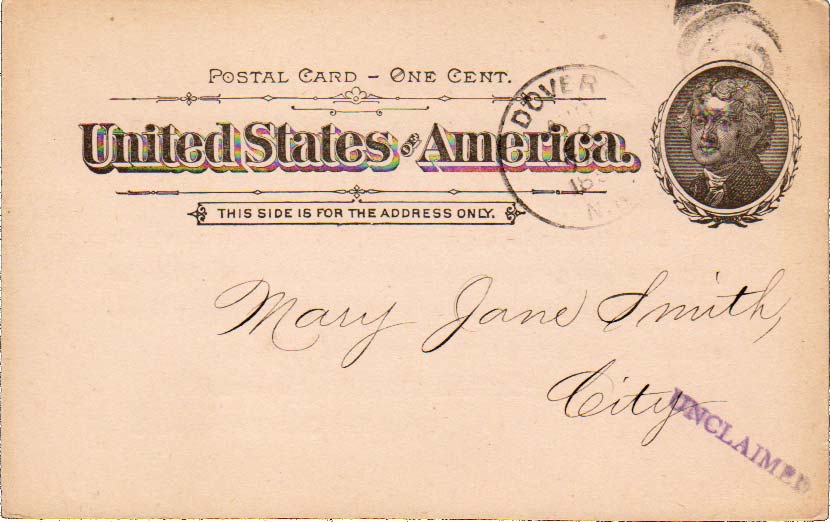 POSTAL CARD – ONE CENT.
United States of America.
THIS SIDE IS FOR THE ADDRESS ONLY.
DOVER
N.
Mary Jane Smith,
City
UNCLAIMED